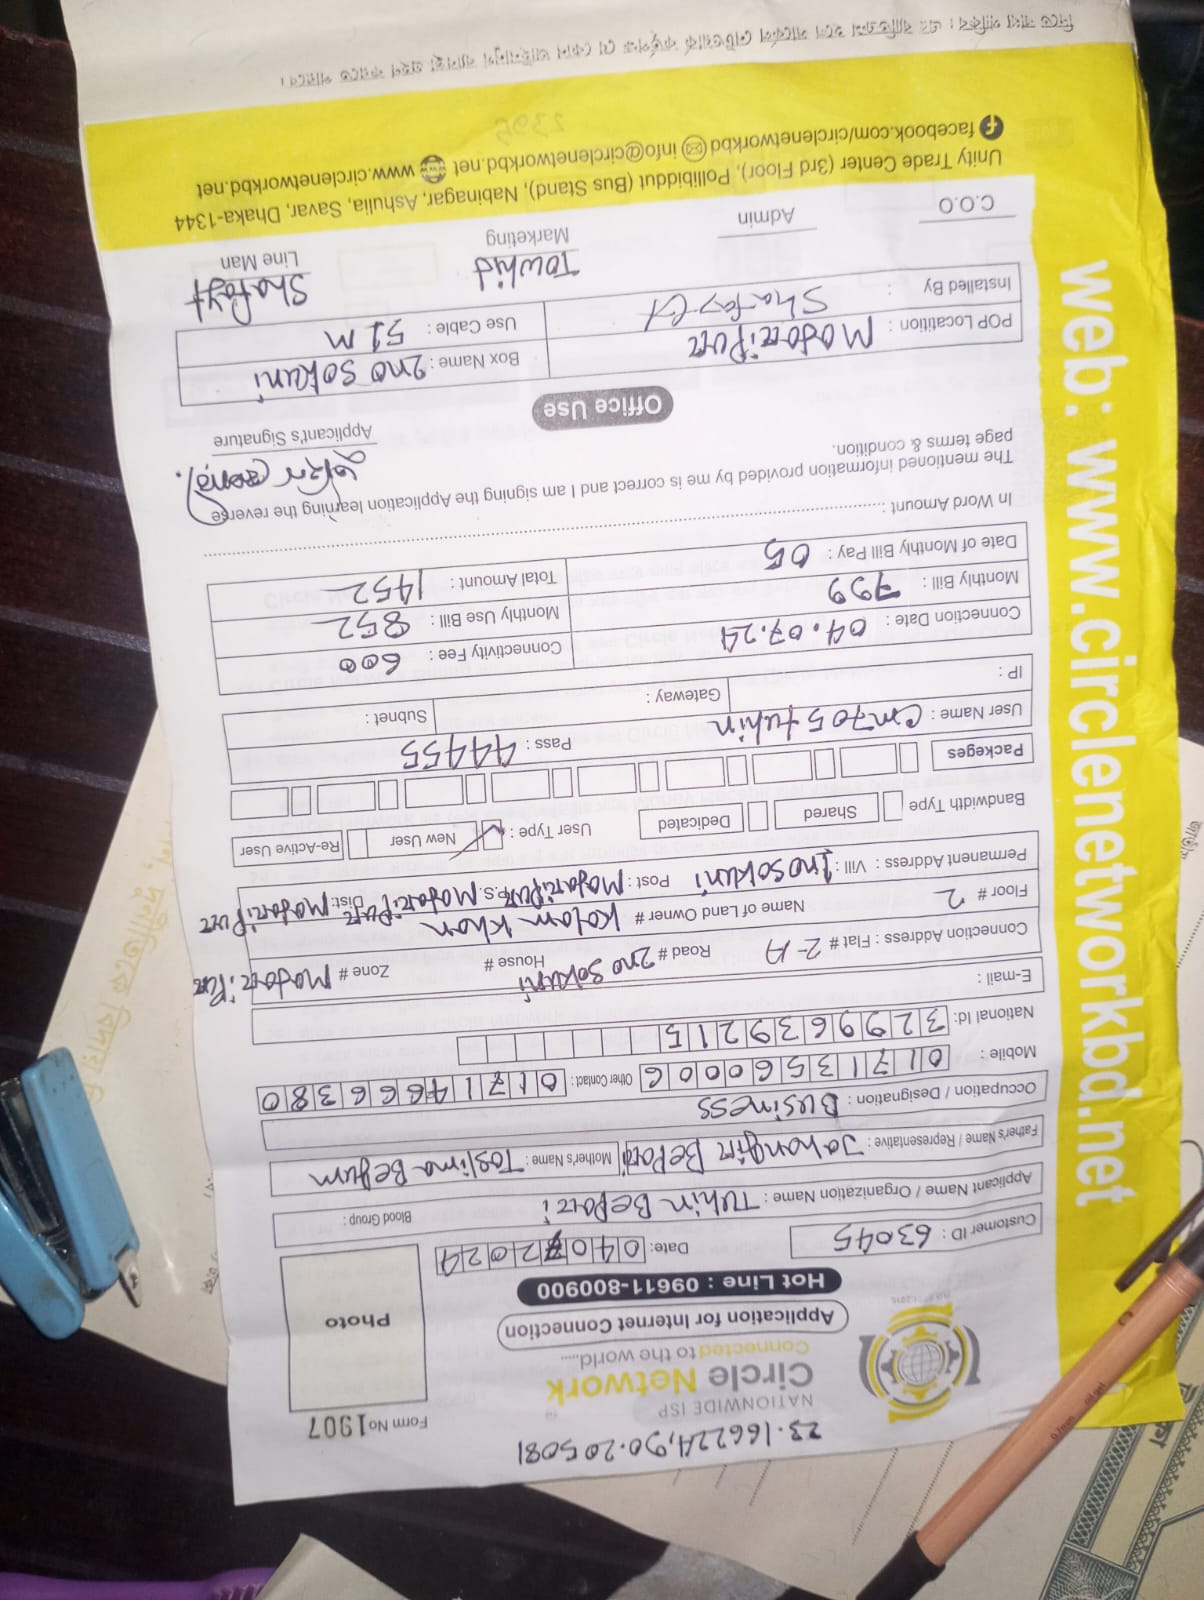 23.166224,90.205081
Form No 1907
NATIONWIDE ISP
Circle Network
Connected to the world.....
Application for Internet Connection
Hot Line : 09611-800900
Photo
Customer ID : 63045 Date: 04072024
Applicant Name / Organization Name : Tuhin Bepari Blood Group :
Father's Name / Representative : Jahangir Bepari Mother's Name : Taslima Begum
Occupation / Designation : Business
Mobile : 01713560006 Other Contact : 01714666380
National Id: 3299639215
E-mail :
Connection Address : Flat # 2-A Road # 2no Sokuni House # Zone # Madaripur
Floor # 2 Name of Land Owner # Kalam Khan
Permanent Address : Vill : 1no Sokuni Post : Madaripur P.S. Madaripur Dist: Madaripur
Bandwidth Type Shared Dedicated User Type : New User Re-Active User
Packeges
User Name : cm705tuhin Pass : 44455
IP : Gateway : Subnet :
Connection Date : 04.07.24 Connectivity Fee : 600
Monthly Bill : 799 Monthly Use Bill : 852
Date of Monthly Bill Pay : 05 Total Amount : 1452
In Word Amount :
The mentioned information provided by me is correct and I am signing the Application learning the reverse
page terms & condition.
Applicant's Signature
Office Use
POP Locatition : Madaripur Box Name : 2no Sokuni
Installed By : Shafayet Use Cable : 51 m
Towhid Shafayet
C.O.O Admin Marketing Line Man
Unity Trade Center (3rd Floor), Pollibiddut (Bus Stand), Nabinagar, Ashulia, Savar, Dhaka-1344
facebook.com/circlenetworkbd info@circlenetworkbd.net www.circlenetworkbd.net
web: www.circlenetworkbd.net